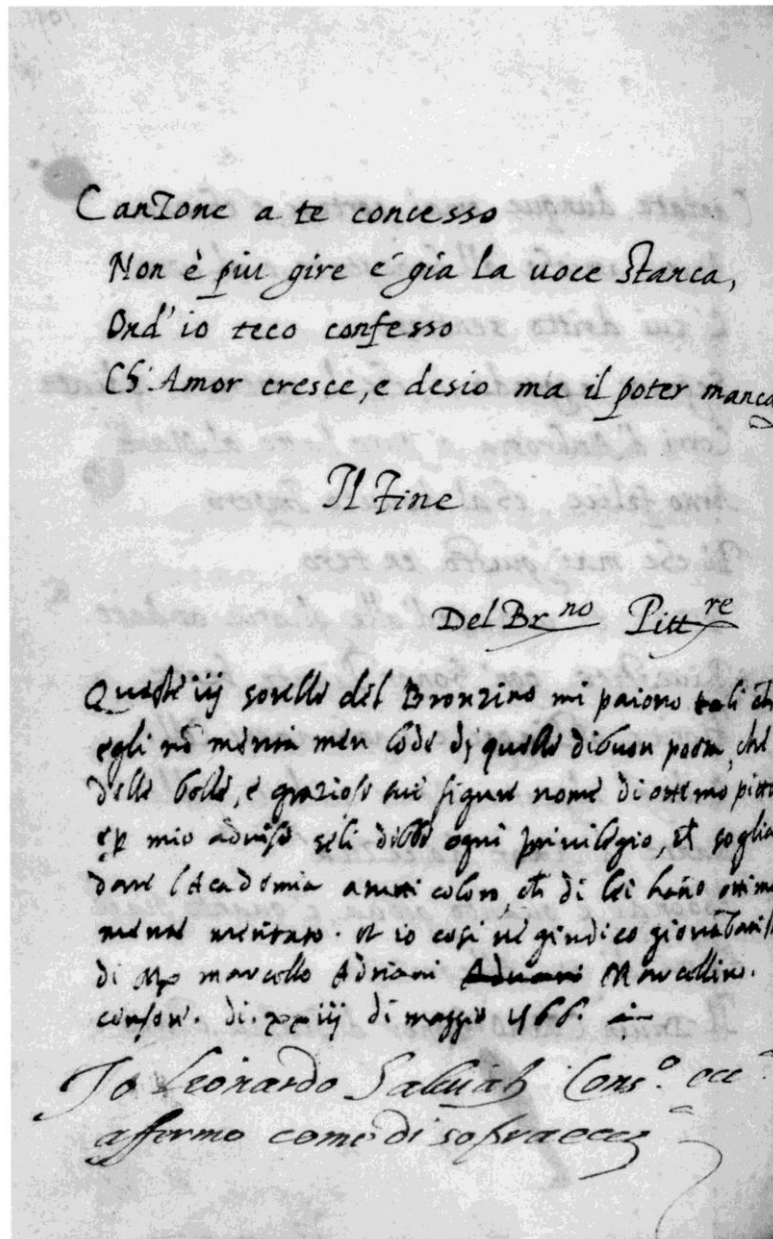 Canzone a te concesso
Non è piu gire e' gia la uoce stanca,
Ond' io teco confesso
Ch' Amor cresce, e desio ma il poter manca
Il Fine
Del Br.no Pitt.re
Queste iij sorelle del Bronzino mi paiono tali ch
egli nõ merita men lode di quelle di buon poeta, che
delle belle, e graziose sue figure nome di ottimo pitto
e p mio aduiso seli debbe ogni priuilegio, ch soglia
dare l'Academia a tutti coloro, ch di lei hãno ottima
mente meritato. et io cosi ne giudico giouãbatist
di Mo marcello Adriani Marcellino.
censore. di. xxiij di maggio 1566.
Io Leonardo Saluiati Cons.o ecc
affermo come di sopra ecc